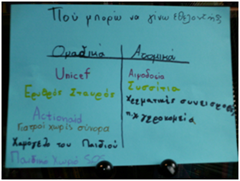 Πού μπορώ να γίνω εθελοντής
Ομαδικά
Ατομικά
Unicef
Αιμοδοσία
Ερυθρός Σταυρός
Συσσίτια
Χρηματικές συνεισφορές
Actionaid
Γιατροί χωρίς σύνορα
π.χ γηροκομεία
Χαμόγελο του Παιδιού
Παιδικά Χωριά SOS